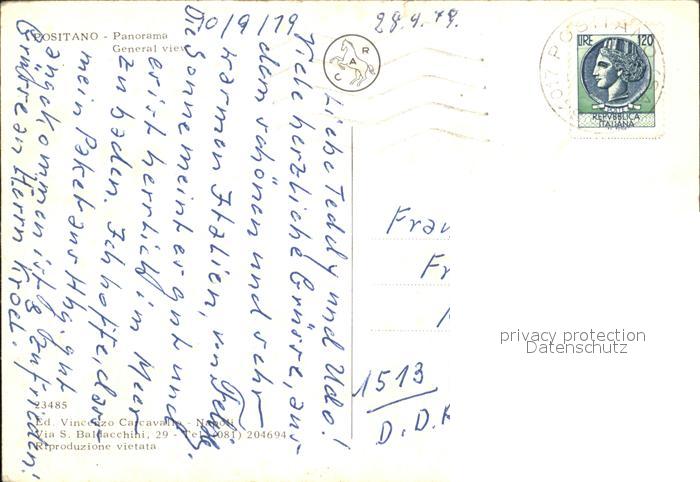 POSITANO - Panorama
General view
10/9/79
28.9.79.
CAR
107 POSITA
LIRE 120
REPVBBLICA
ITALIANA
Liebe Teddy und Udo!
Viele herzliche Grüsse, aus
dem schönen und sehr
warmen Italien, von
Die Sonne meint es gut und
es ist herrlich im Meer
zu baden. Ich hoffe, dass
mein Paket aus Hbg. gut
angekommen ist & zufrieden!
Grüsse an Herrn Kroel.
Frau
Fr
1513
D.D.R
privacy protection
Datenschutz
23485
Ed. Vincenzo Carcavallo - Napoli
Via S. Baldacchini, 29 - Tel. (081) 204694
Riproduzione vietata